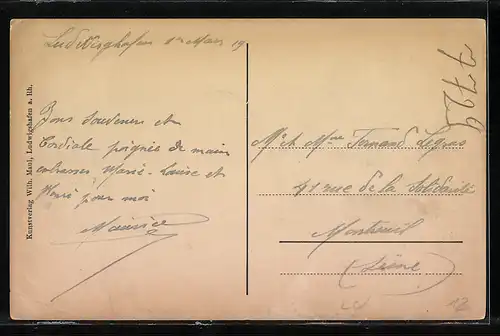 Ludwigshafen 1er Mars 19
Bons souvenirs et
Cordiale poignée de mains
embrasses Marie-Louise et
pour moi
Maurice
Kunstverlag Wilh. Maul, Ludwigshafen a. Rh.
Mr et Mme Fernand Legras
41 rue de la Solidarité
Montreuil
(Seine)
7729